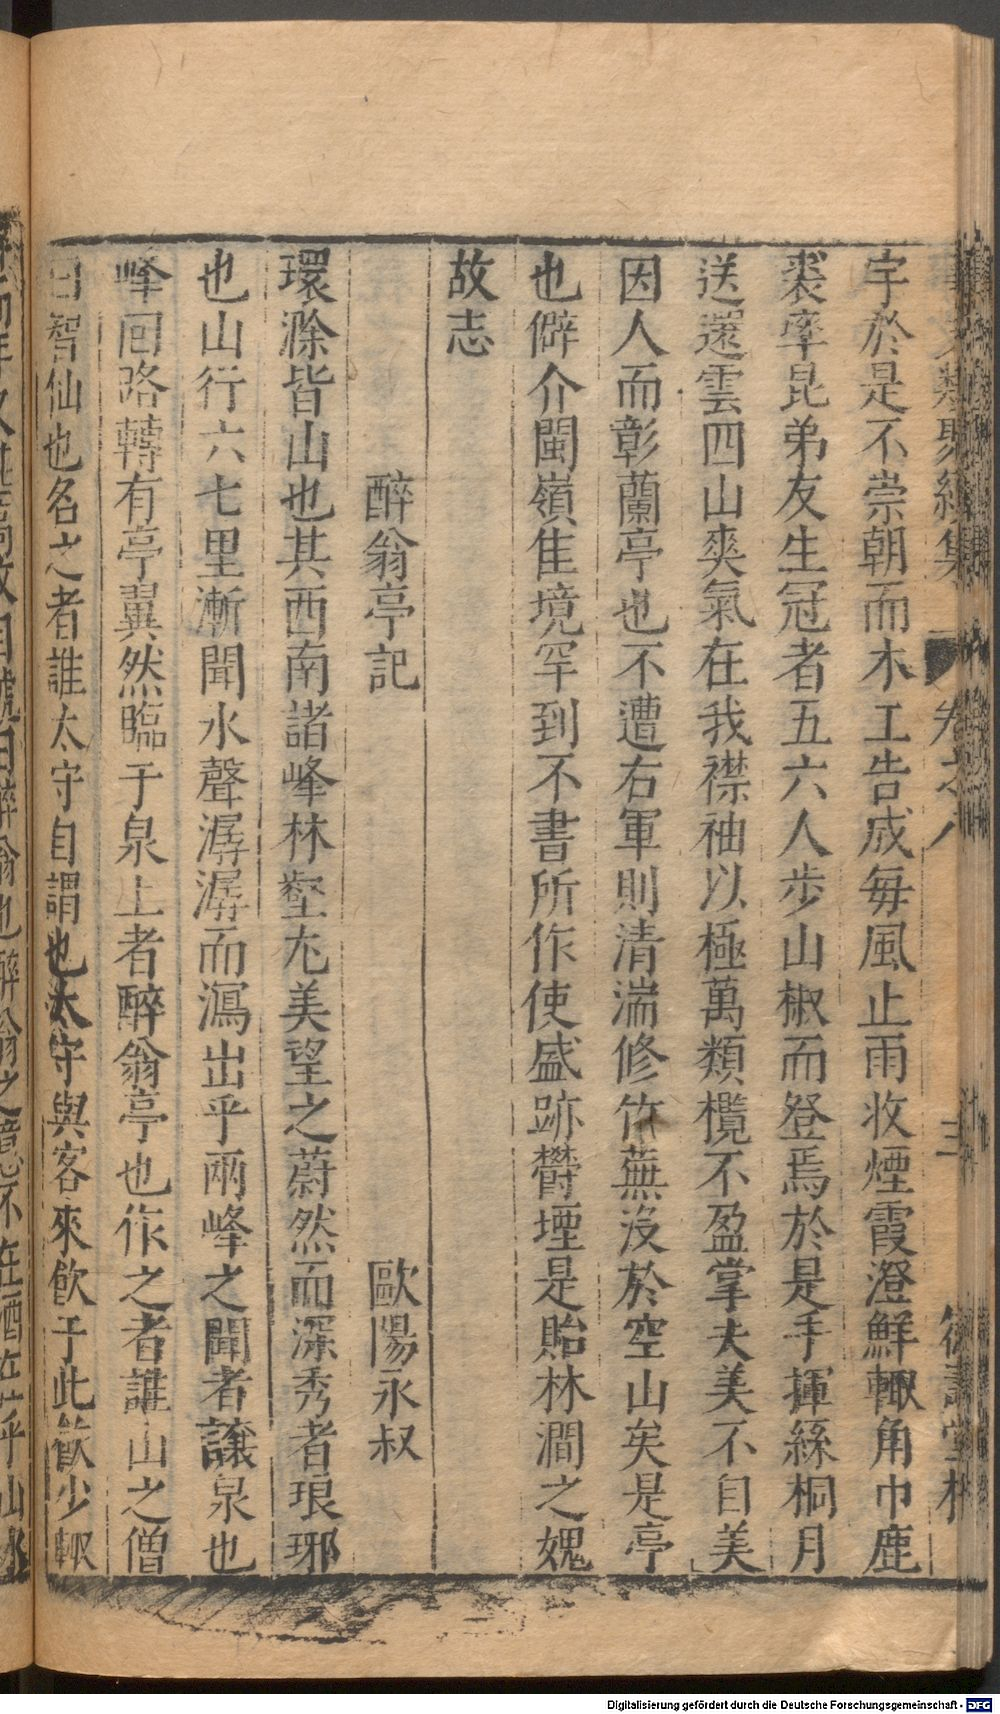 宇於是不崇朝而木工告成每風止雨收煙霞澄鮮輙角巾鹿
裘率昆弟友生冠者五六人步山椒而登焉於是手揮絲桐月
送還雲四山爽氣在我襟袖以極萬類欖不盈掌夫美不自美
因人而彰蘭亭也不遭右軍則清湍修竹蕪没於空山矣是亭
也僻介閩嶺佳境罕到不書所作使盛跡欝堙是貽林澗之媿
故志
醉翁亭記 歐陽永叔
環滁皆山也其西南諸峰林壑尤美望之蔚然而深秀者琅琊
也山行六七里漸聞水聲潺潺而瀉出乎兩峰之聞者讓泉也
峰回路轉有亭翼然臨于泉上者醉翁亭也作之者誰山之僧
曰智仙也名之者誰太守自謂也太守與客來飲于此飲少輙
Digitalisierung gefördert durch die Deutsche Forschungsgemeinschaft - DFG